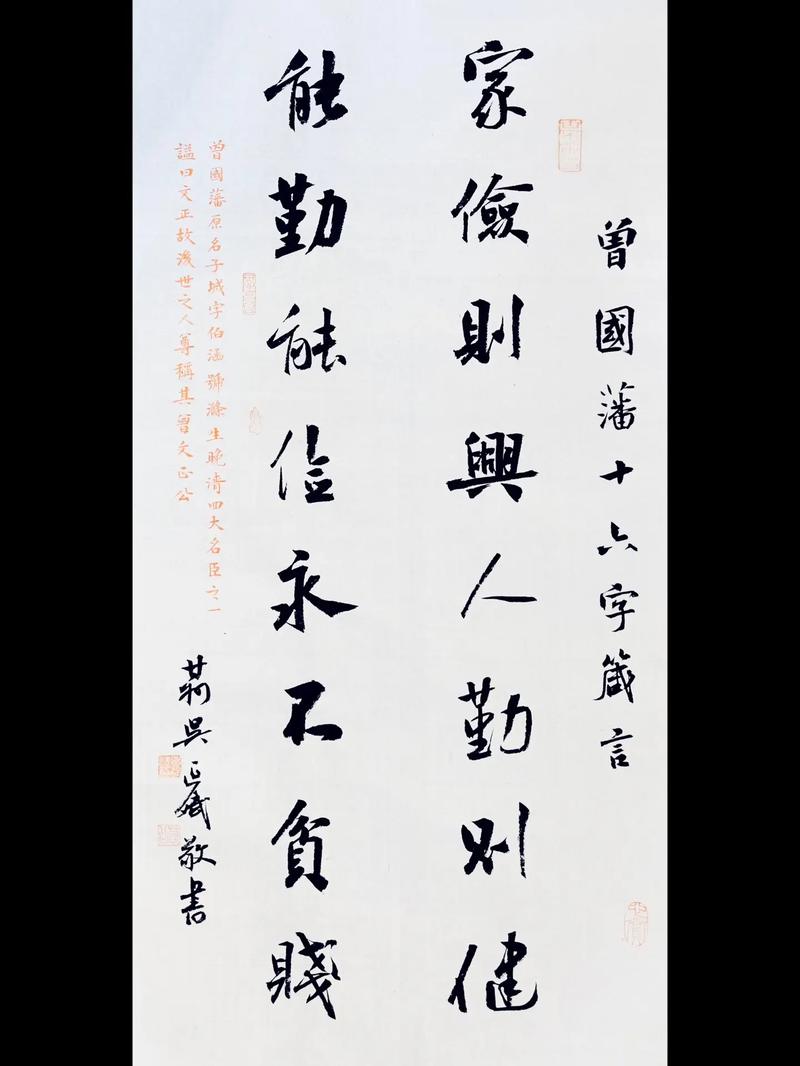 曾國藩十六字箴言
家儉則興人勤則健
能勤能儉永不貧賤
曾國藩原名子城字伯涵號滌生晚清四大名臣之一
謚曰文正故後世之人尊稱其曾文正公
吳敬書